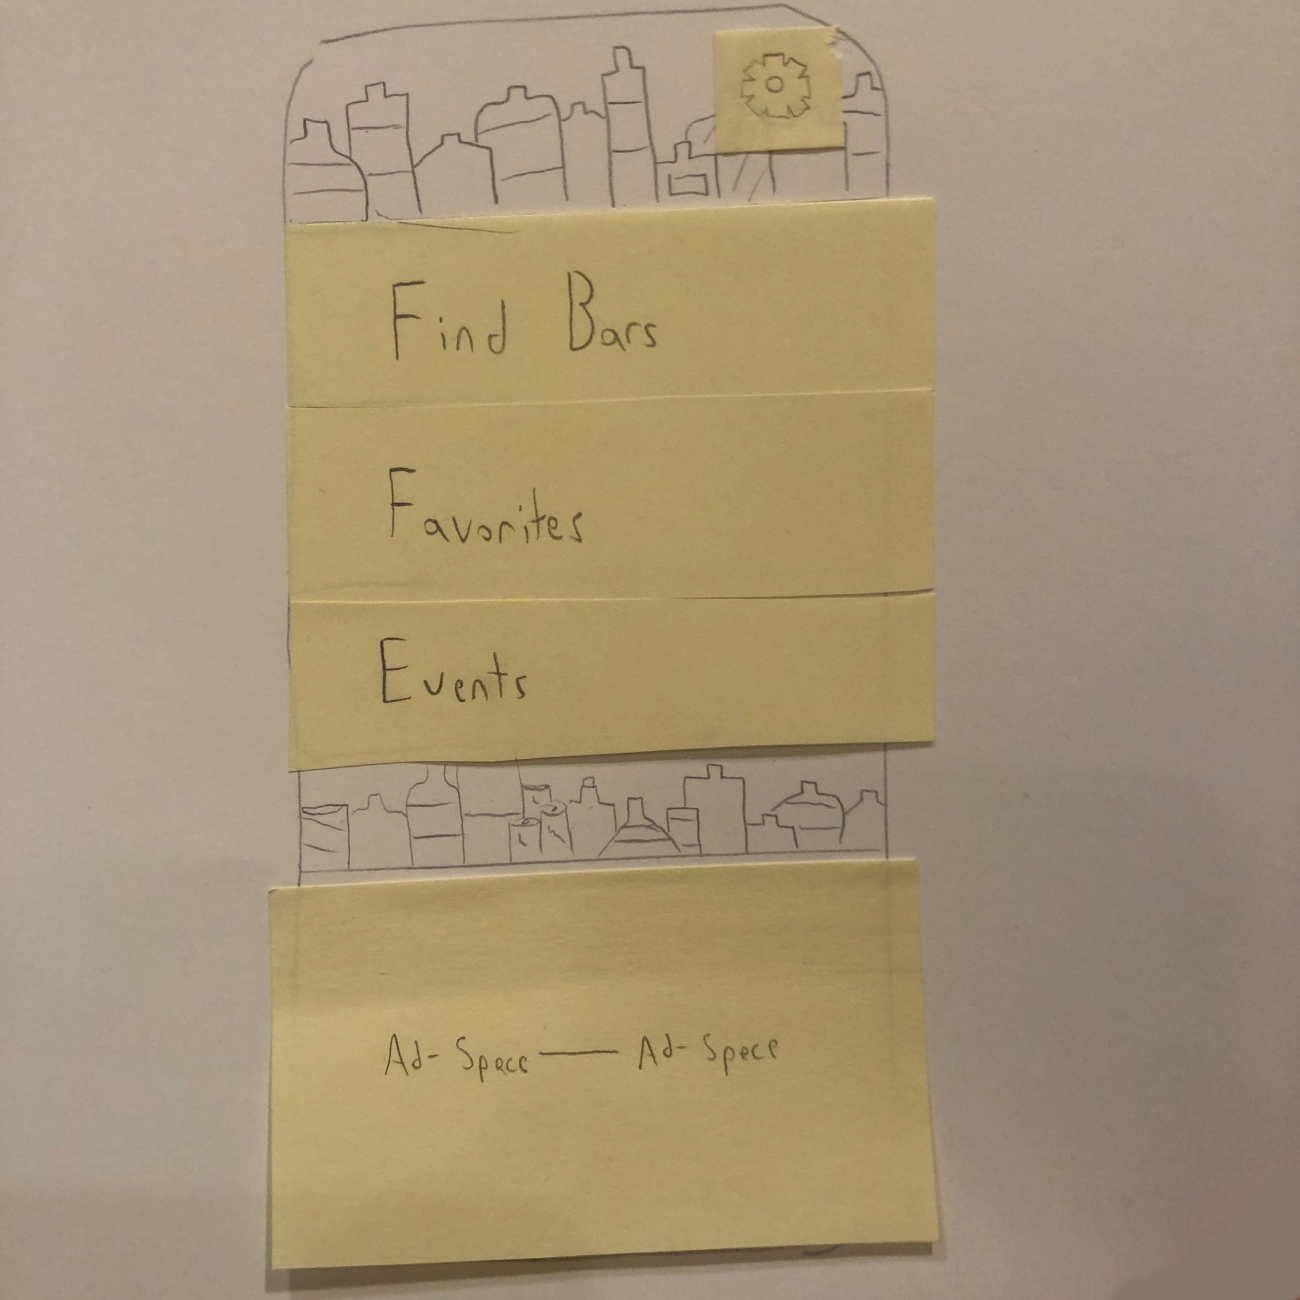 Find Bars
Favorites
Events
Ad-Space — Ad-Space